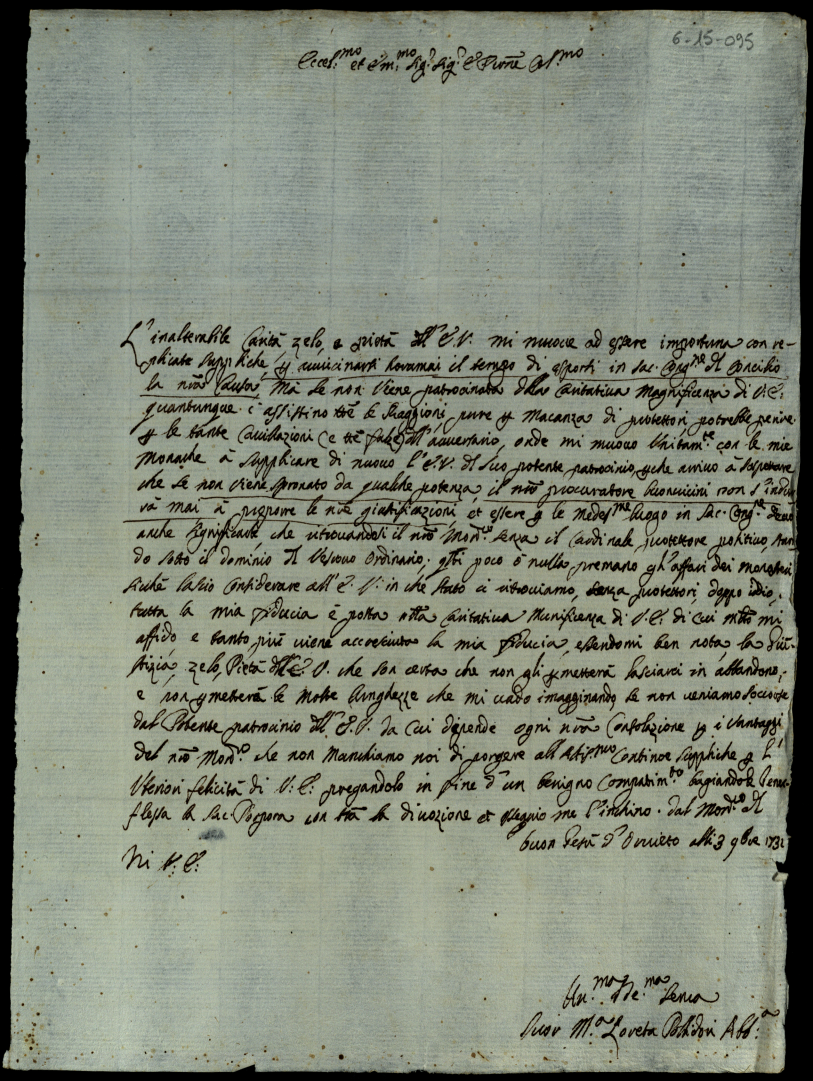 6-15-095
Eccel:mo et Em:mo Sig:r Sig:r e Prone Col:mo
L'inalterabile Carità zelo, e pietà dll'E.V. mi muove ad essere importuna con re-
plicate suppliche, p avvicinarsi horamai il tempo di esporsi in Sac: Cong:ne dl Concilio
la nrã Causa, Mà se non viene patrocinata dalla Caritativa Magnificenza di V:E:
quantunque c'assistino ttte le Raggioni, pure p Macanza di protettori potrebbe perire
p le tante Cavillazioni, e dll'avversario, onde mi muovo Unitam:te con le mie
Monache à supplicare di nuovo l'E.V. dl suo potente patrocinio, che arrivo à sospettare
che se non viene spronato da qualche potenza, il nrõ procuratore non s'indur
rà mai à proporre le nrẽ giustificazioni, et essere p le Medes:me luogo in Sac: Cong:ne
anche significarle che ritrovandosi il nrõ Mon:rio senza il Cardinale protettore positivo, stan
do sotto il dominio dl Vescovo Ordinario, poco ò nulla premano gl'affari dei monasteri
sicchè lascio considerare all'E.V. in che stato ci ritroviamo, senza protettori, doppo idio,
tutta la mia fiducia è posta nlla Caritativa Munificenza di V:E: di cui mlto mi
affido e tanto più viene accresciuta la mia fiducia, essendomi ben nota la Giu-
stizia, zelo, Pietà dll'E.V. che son certa che non gli pmetterà lasciarci in abbandono,
e non pmetterà le Molte che mi vado imagginando se non veniamo soccorse
dal Potente patrocinio dll'E.V. da cui dipende ogni nrã Consolazione p i vantaggi
del nrõ Mon:rio che non Manchiamo noi di porgere all'Altis:mo Continoe suppliche p l'
Uteriori felicità di V:E: pregandolo in fine d'un benigno Compatim:to bagiandole Genu-
flessa la Sac: Porpora con ttã la divozione et ossequio me l'inchino. dal Mon:rio dl
buon Gesù d'Orvieto alli 3 9bre 1731
Di V:E:
Um:ma De:ma Serva
Suor M:a Loreta Polidori Abb:a